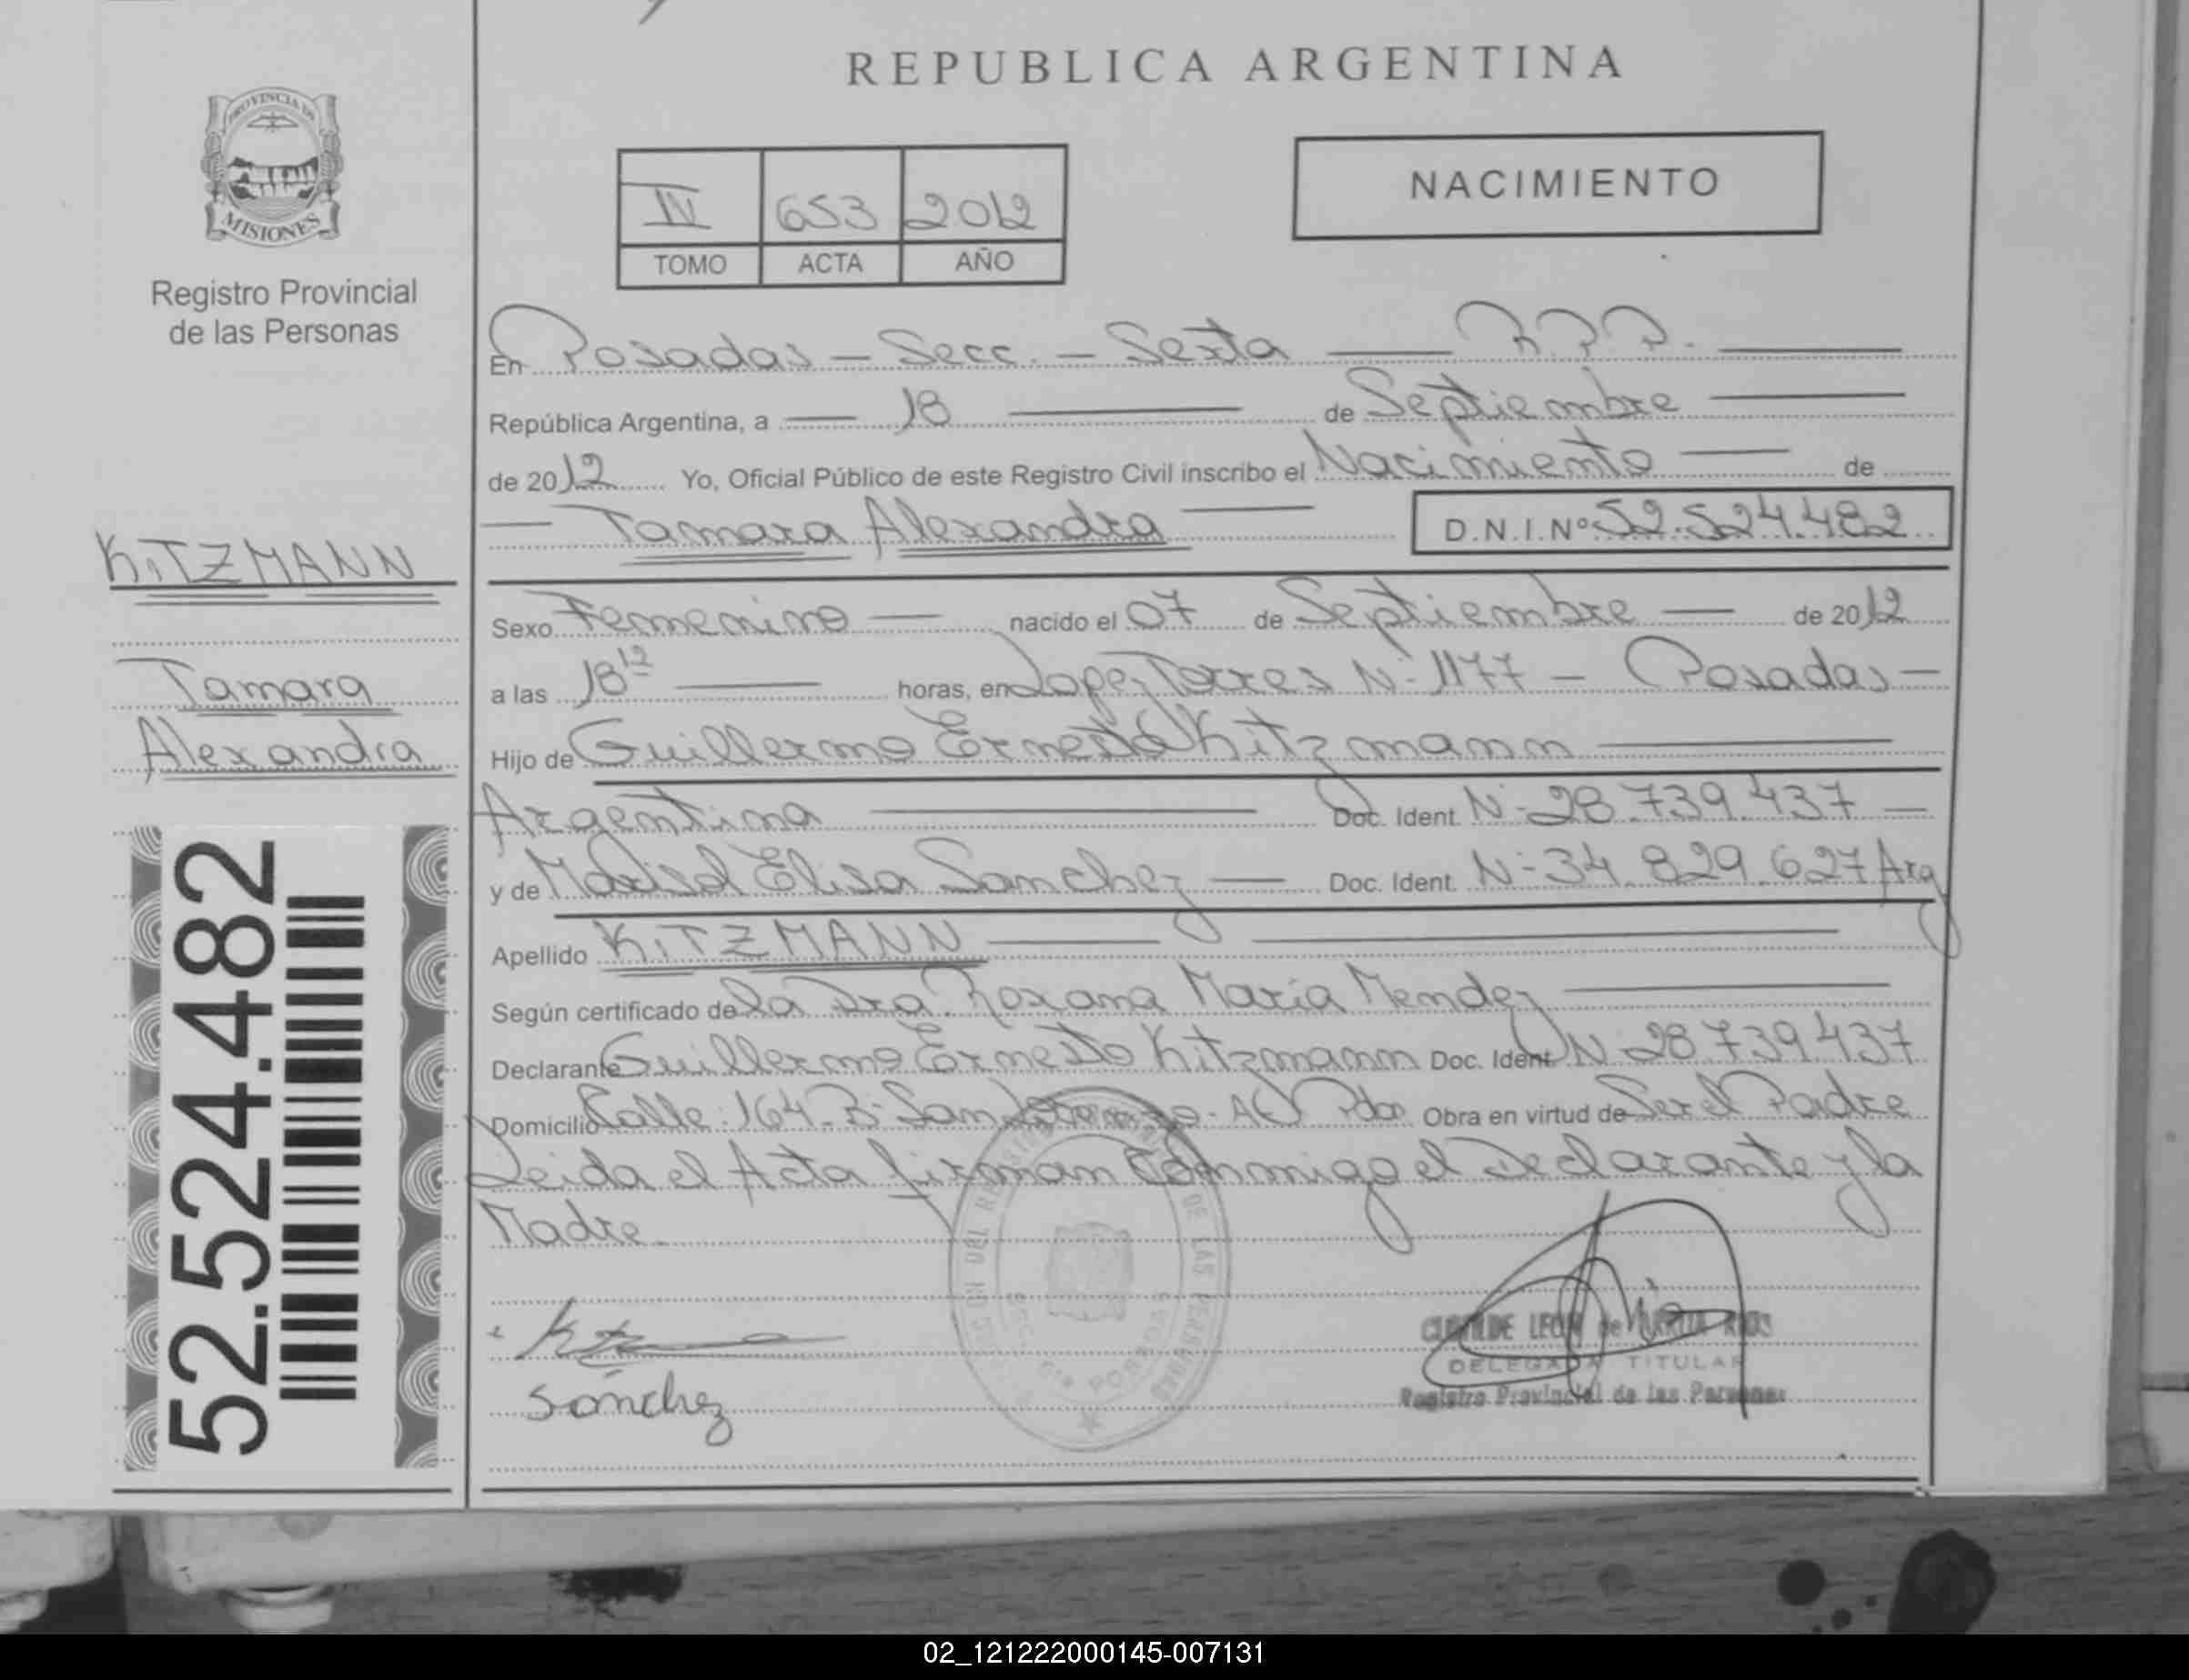 REPUBLICA ARGENTINA
PROVINCIA DE
MISIONES
Registro Provincial
de las Personas
NACIMIENTO
IV 653 2012
TOMO ACTA AÑO
En Posadas - Secc. - Sexta R.P.P.
República Argentina, a 18 de Septiembre
de 2012 Yo, Oficial Público de este Registro Civil inscribo el Nacimiento de
Tamara Alexandra D.N.I.Nº 52.524.482
KITZMANN
Tamara
Alexandra
52.524.482
Sexo Femenino nacido el 07 de Septiembre de 2012
a las 18 12 horas, en Lopez Torres N- 1177 - Posadas -
Hijo de Guillermo Ernesto Kitzmann
Argentina Doc. Ident. N- 28.739.437
y de Marisol Elisa Sanchez Doc. Ident. N- 34.829.627 Arg
Apellido KITZMANN
Según certificado de la Dra. Roxana Maria Mendez
Declarante Guillermo Ernesto Kitzmann Doc. Ident. N 28.739.437
Domicilio Calle: 164 San Obra en virtud de Ser el Padre
Leida el Acta firman Conmigo el Declarante y la
Madre.
DE LAS PERSONAS
SECC. 6ta POSADAS
Sánchez
DELEGADA TITULAR
Registro Provincial de las Personas
02_121222000145-007131